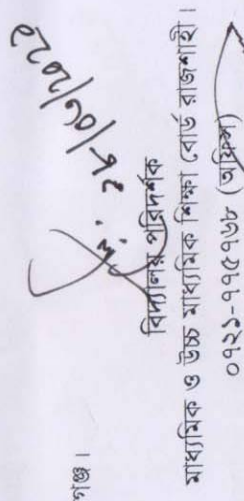 গঞ্জ।
বিদ্যালয় পরিদর্শক
মাধ্যমিক ও উচ্চ মাধ্যমিক শিক্ষা বোর্ড রাজশাহী।
০৭২১-৭৭৫৭৬৮ (অফিস)